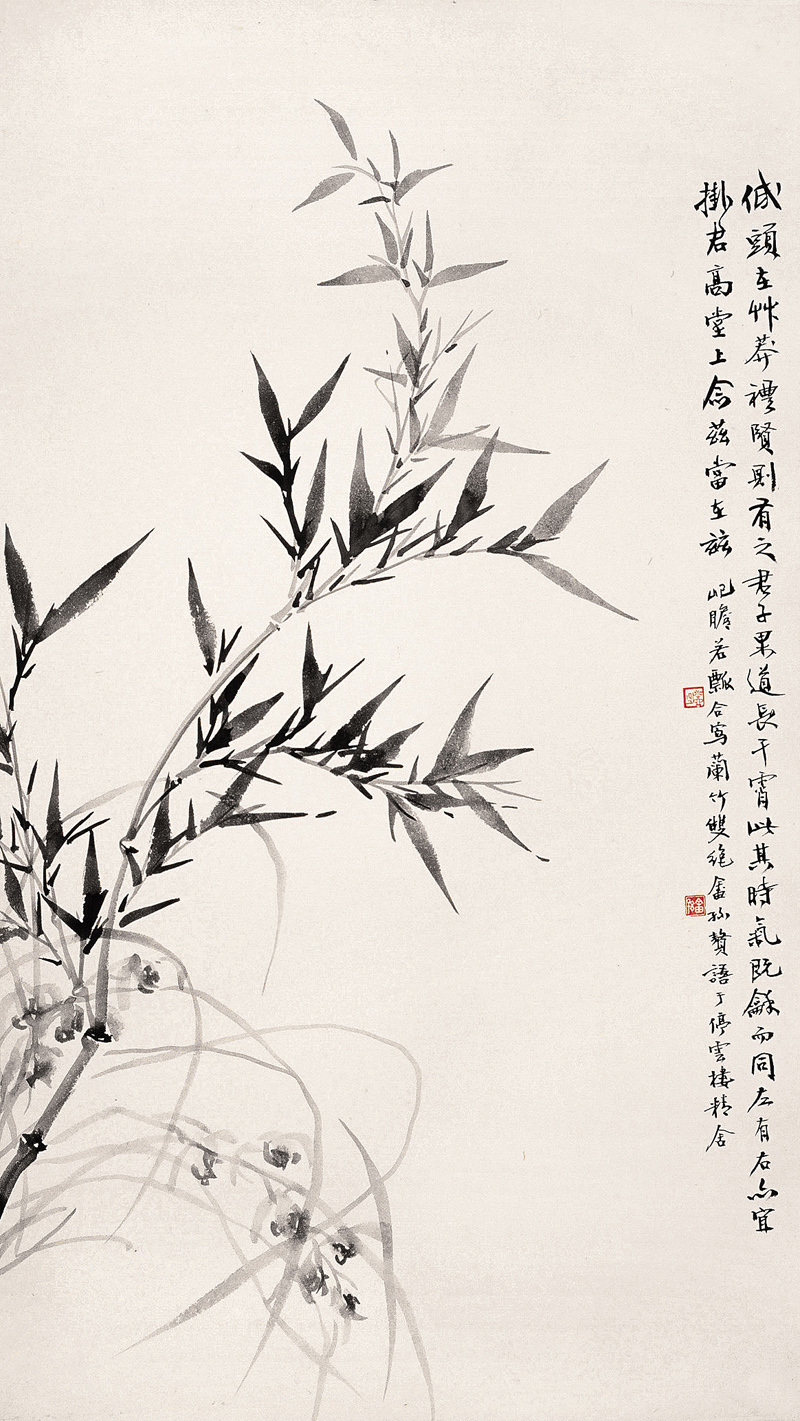 低頭在艸莽禮賢則有之君子果道長干霄此其時氣既龢而同左有右亦宜
掛君高堂上念茲當在茲 屺瞻若瓢合寫蘭竹雙絕 畬孫贅語于停雲樓精舍